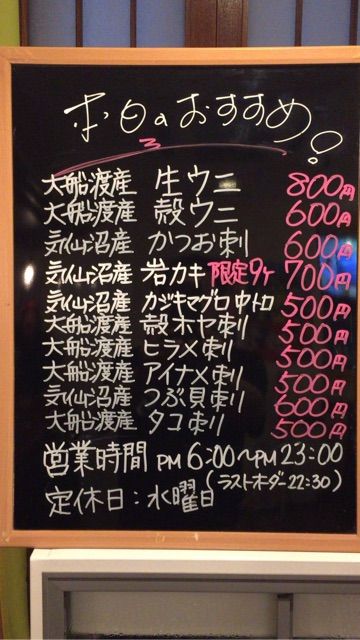 本日のおすすめ!
大船渡産 生ウニ 800円
大船渡産 殻ウニ 600円
気仙沼産 かつお刺 600円
気仙沼産 岩カキ 限定9ヶ 700円
気仙沼産 カジキマグロ中トロ 500円
大船渡産 殻ホヤ刺 500円
大船渡産 ヒラメ刺 500円
大船渡産 アイナメ刺 500円
気仙沼産 つぶ貝刺 600円
大船渡産 タコ刺 500円
営業時間 PM 6:00〜PM 23:00
(ラストオーダー22:30)
定休日:水曜日